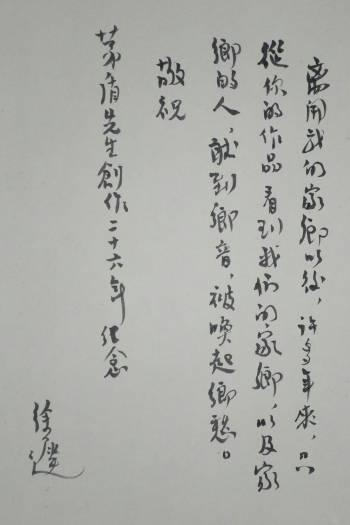 离开我的家鄉以後，许多年来，只
從你的作品看到我们的家鄉，以及家
鄉的人，聽到鄉音，被喚起鄉愁。
敬祝
茅盾先生創作二十六年纪念
徐遲